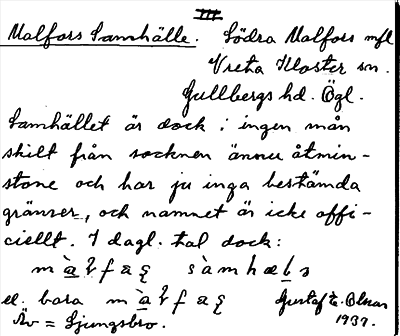 III
Malfors Samhälle. Södra Malfors mfl
Vreta Kloster sn.
Gullbergs hd. Ögl.
Samhället är dock i ingen mån
skilt från socknen ännu åtmin-
stone och har ju inga bestämda
gränser, och namnet är icke offi-
ciellt. I dagl. tal dock:
el. bara
Gustaf E. Olsson
Äv = Ljungsbro. 1937.